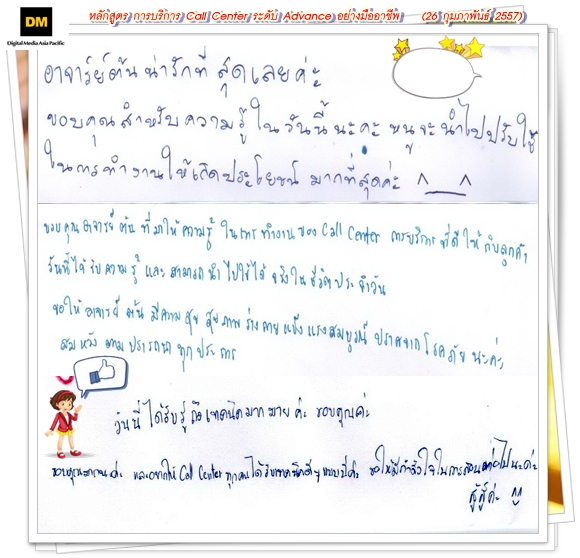 หลักสูตร การบริการ Call Center ระดับ Advance อย่างมืออาชีพ (26 กุมภาพันธ์ 2557)
DM
Digital Media Asia Pacific
อาจารย์ต้นน่ารักที่สุดเลยค่ะ
ขอบคุณสำหรับความรู้ในวันนี้นะคะ หนูจะนำไปปรับใช้
ในการทำงานให้เกิดประโยชน์ มากที่สุดค่ะ ^__^
ขอบคุณอาจารย์ ต้น ที่มาให้ความรู้ ในการทำงานของ Call Center การบริการที่ดีให้กับลูกค้า
วันนี้ได้รับความรู้ และสามารถนำไปใช้ได้ จริงในชีวิตประจำวัน
ขอให้อาจารย์ ต้น มีความสุข สุขภาพร่างกายแข็งแรงสมบูรณ์ ปราศจากโรคภัย นะค่ะ
สมหวัง ตามปรารถนาทุกประการ
วันนี้ได้รับรู้ถึงเทคนิคมากมาย ค่ะ ขอบคุณค่ะ
ค่ะ และอยากให้ Call Center ทุกคนได้รับเทคนิคดีๆ แบบนี้ค่ะ ขอให้มีกำลังใจในการสอนต่อไปนะค่ะ
สู้สู้ค่ะ ^^